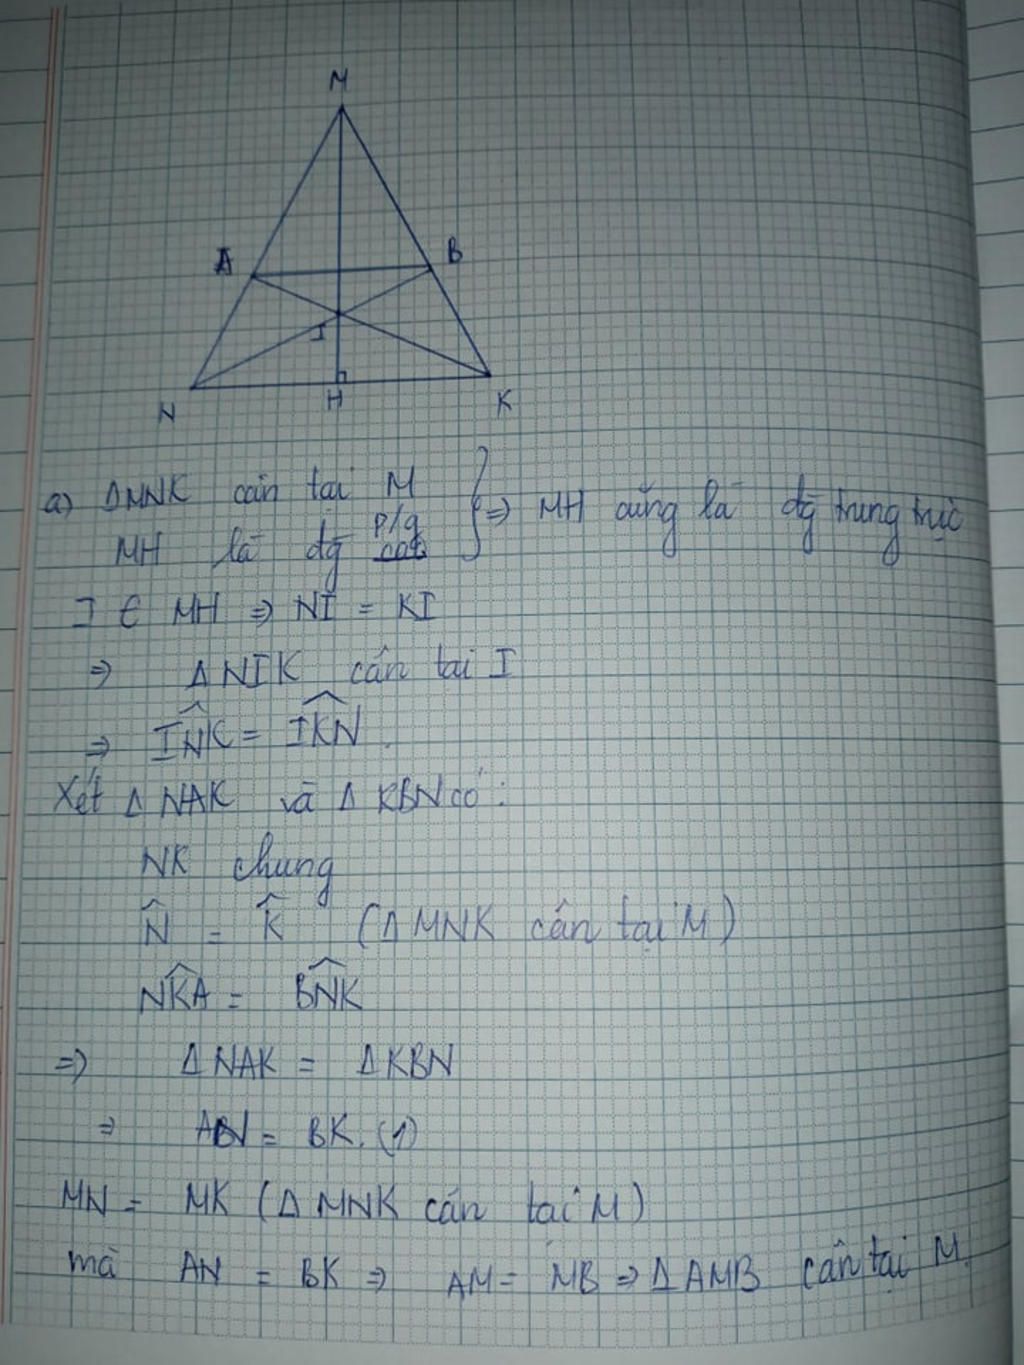 M
A
B
I
N
H
K
a) ΔMNK cân tại M
MH là đg p/g
} ⇒ MH cũng là đg trung trực
I ∈ MH ⇒ NI = KI
⇒ ΔNIK cân tại I
⇒ \widehat{INK} = \widehat{IKN}.
Xét Δ NAK và Δ KBN có:
NK chung
\widehat{N} = \widehat{K} (Δ MNK cân tại M)
\widehat{NKA} = \widehat{BNK}
⇒ Δ NAK = Δ KBN
⇒ AN = BK. (1)
MN = MK (Δ MNK cân tại M)
mà AN = BK ⇒ AM = MB ⇒ Δ AMB cân tại M.